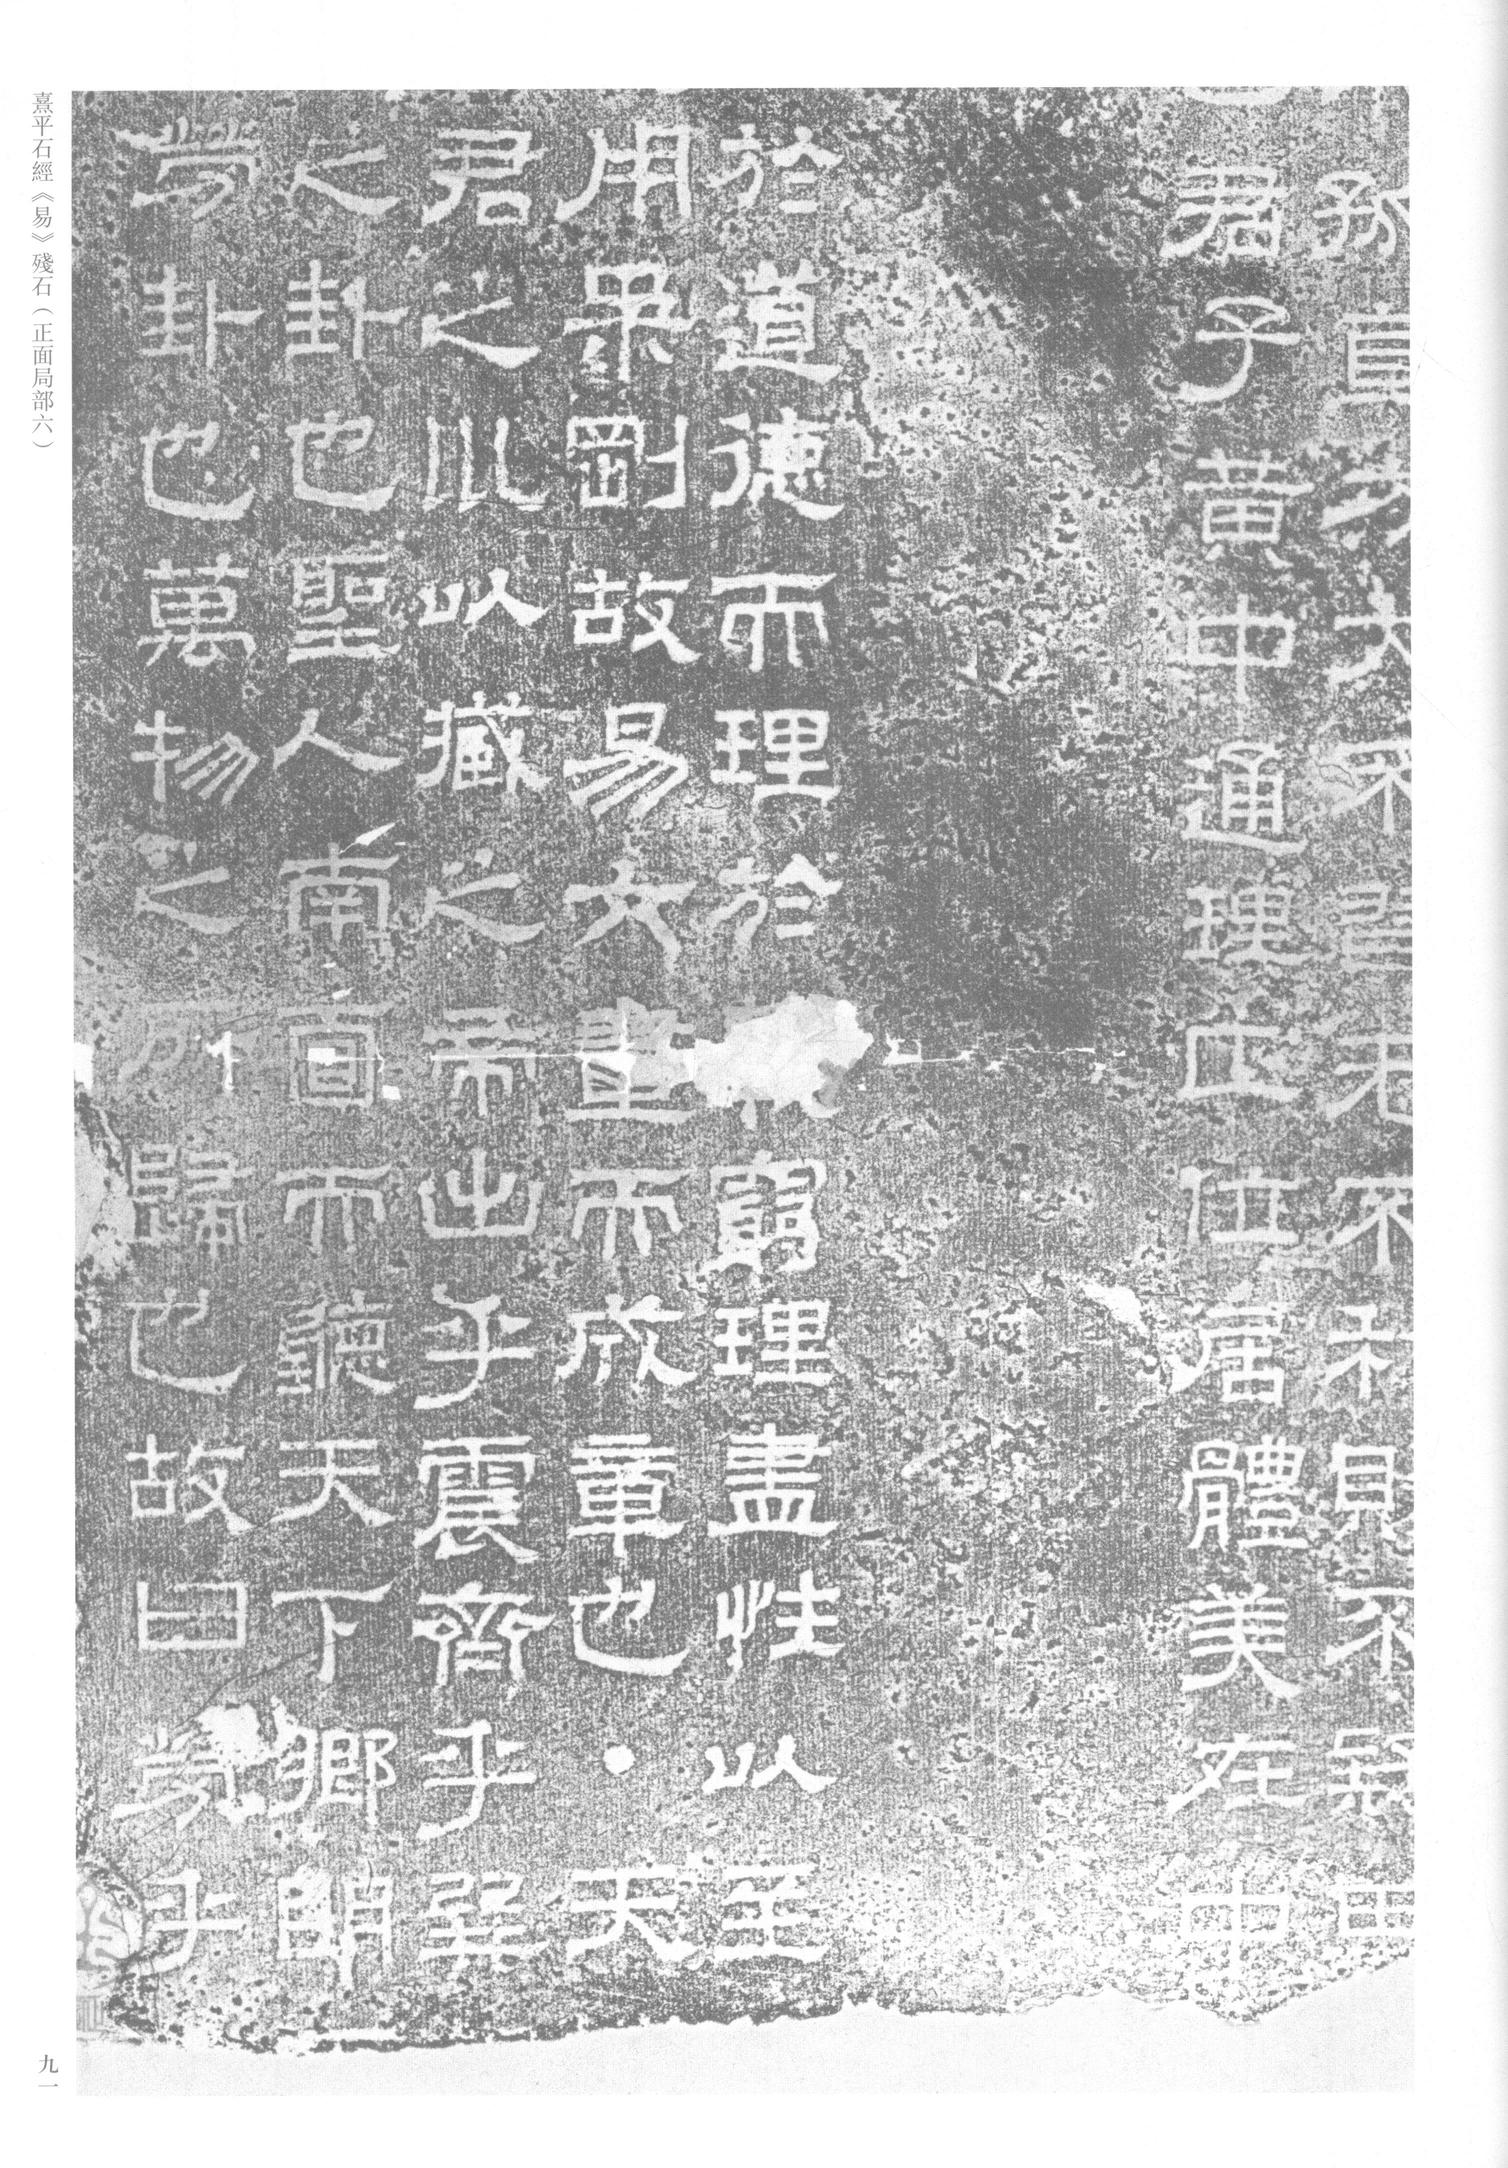 孤直方大不習无不利則不疑其
君子黃中通理正位居體美在中
於道德而理於窮理盡性以至
用柔剛故易六畫而成章也・天
君之川以藏之帝出乎震齊乎巽
之卦也聖人南面而聽天下鄉明
勞卦也萬物之所歸也故曰勞乎
熹平石經《易》殘石（正面局部六）
九一